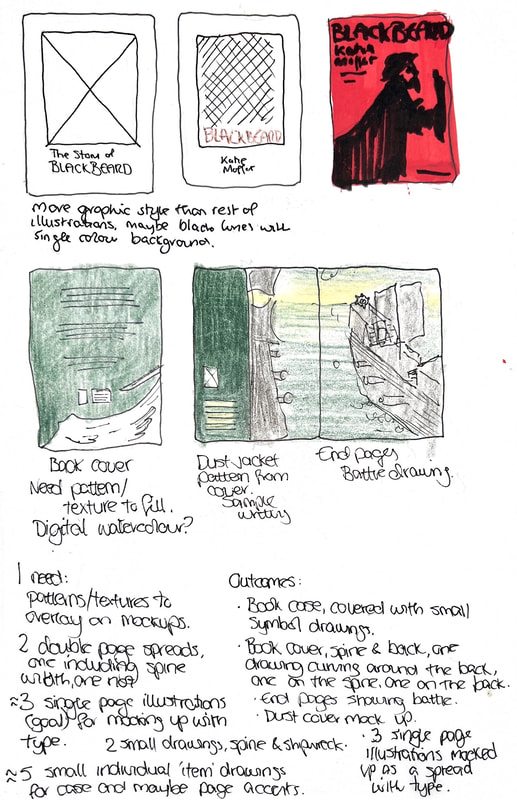 The Story of
BLACKBEARD
BLACKBEARD
Katie
Moffat
BLACKBEARD
Katie
Moffat
More graphic style than rest of
illustrations, maybe black lines with
single colour background.
Book cover
Need pattern/
texture to fill.
Digital watercolour?
Dust jacket
pattern from
cover.
Sample
writing
End pages
Battle drawing.
I need:
patterns/textures to
overlay on mockups.
2 double page spreads,
one including spine
width, one not
≈3 single page illustrations
(goal) for mocking up with
type.
2 small drawings, spine & shipwreck.
≈5 small individual 'item' drawings
for case and maybe page accents.
Outcomes:
· Book case, covered with small
symbol drawings.
· Book cover, spine & back, one
drawing curving around the back,
one on the spine, one on the back.
· End pages showing battle.
· Dust cover mock up.
· 3 single page
illustrations mocked
up as a spread
with type.